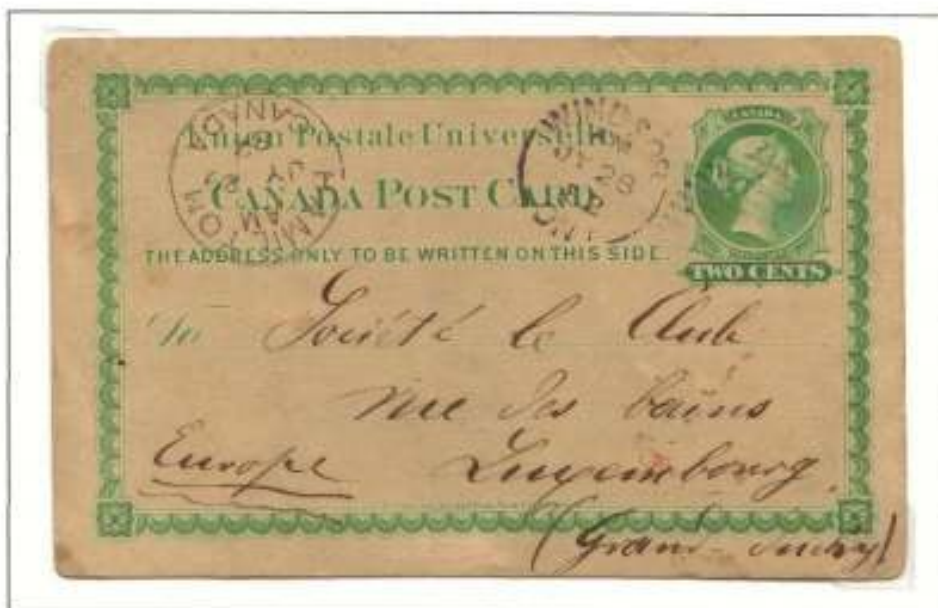 Union Postale Universelle.
CANADA POST CARD
THE ADDRESS ONLY TO BE WRITTEN ON THIS SIDE.
CANADA
TWO CENTS
WINDSOR
PM
28
ONT
CANADA
AM
To Société le Club
rue des bains
Europe Luxembourg.
(Grand-Duchy)